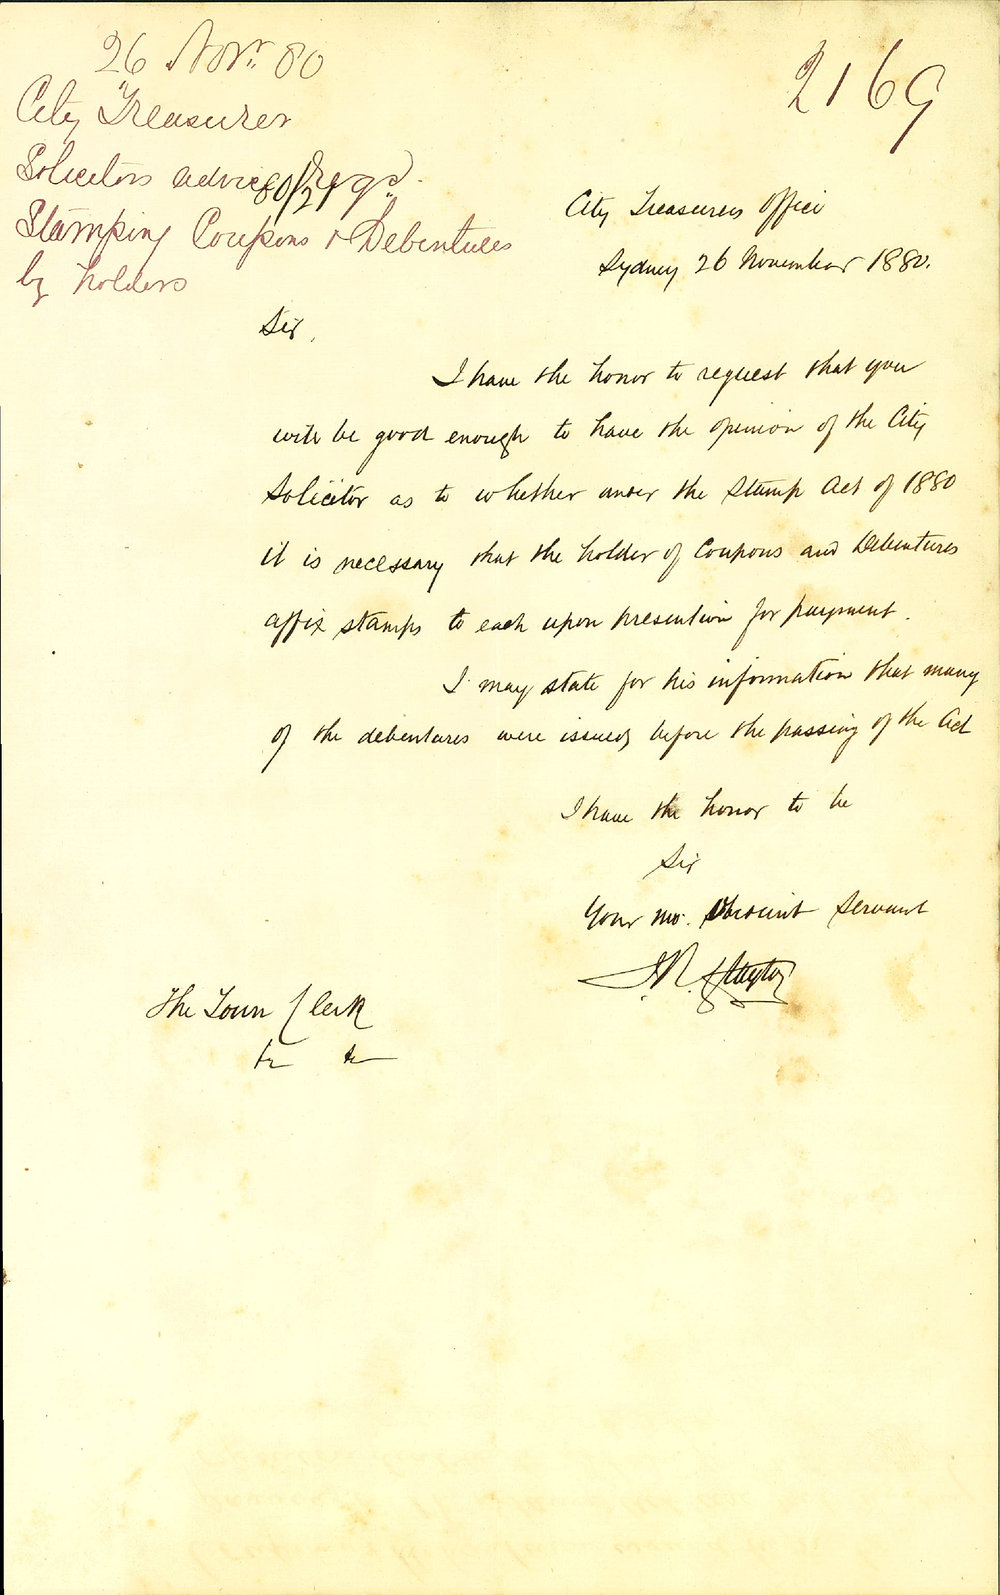 26 Novr. 80
2169
City Treasurer
Solicitors advice reqd.
80/21
Stamping Coupons & Debentures
by holders
City Treasurers Office
Sydney 26 November 1880.
Sir,
I have the honor to request that you
will be good enough to have the opinion of the City
Solicitor as to whether under the Stamp Act of 1880
it is necessary that the holder of Coupons and Debentures
affix stamps to each upon presention for payment.
I may state for his information that many
of the debentures were issued before the passing of the Act
I have the honor to be
Sir
Your mo. Obedient Servant
The Town Clerk
&c &c